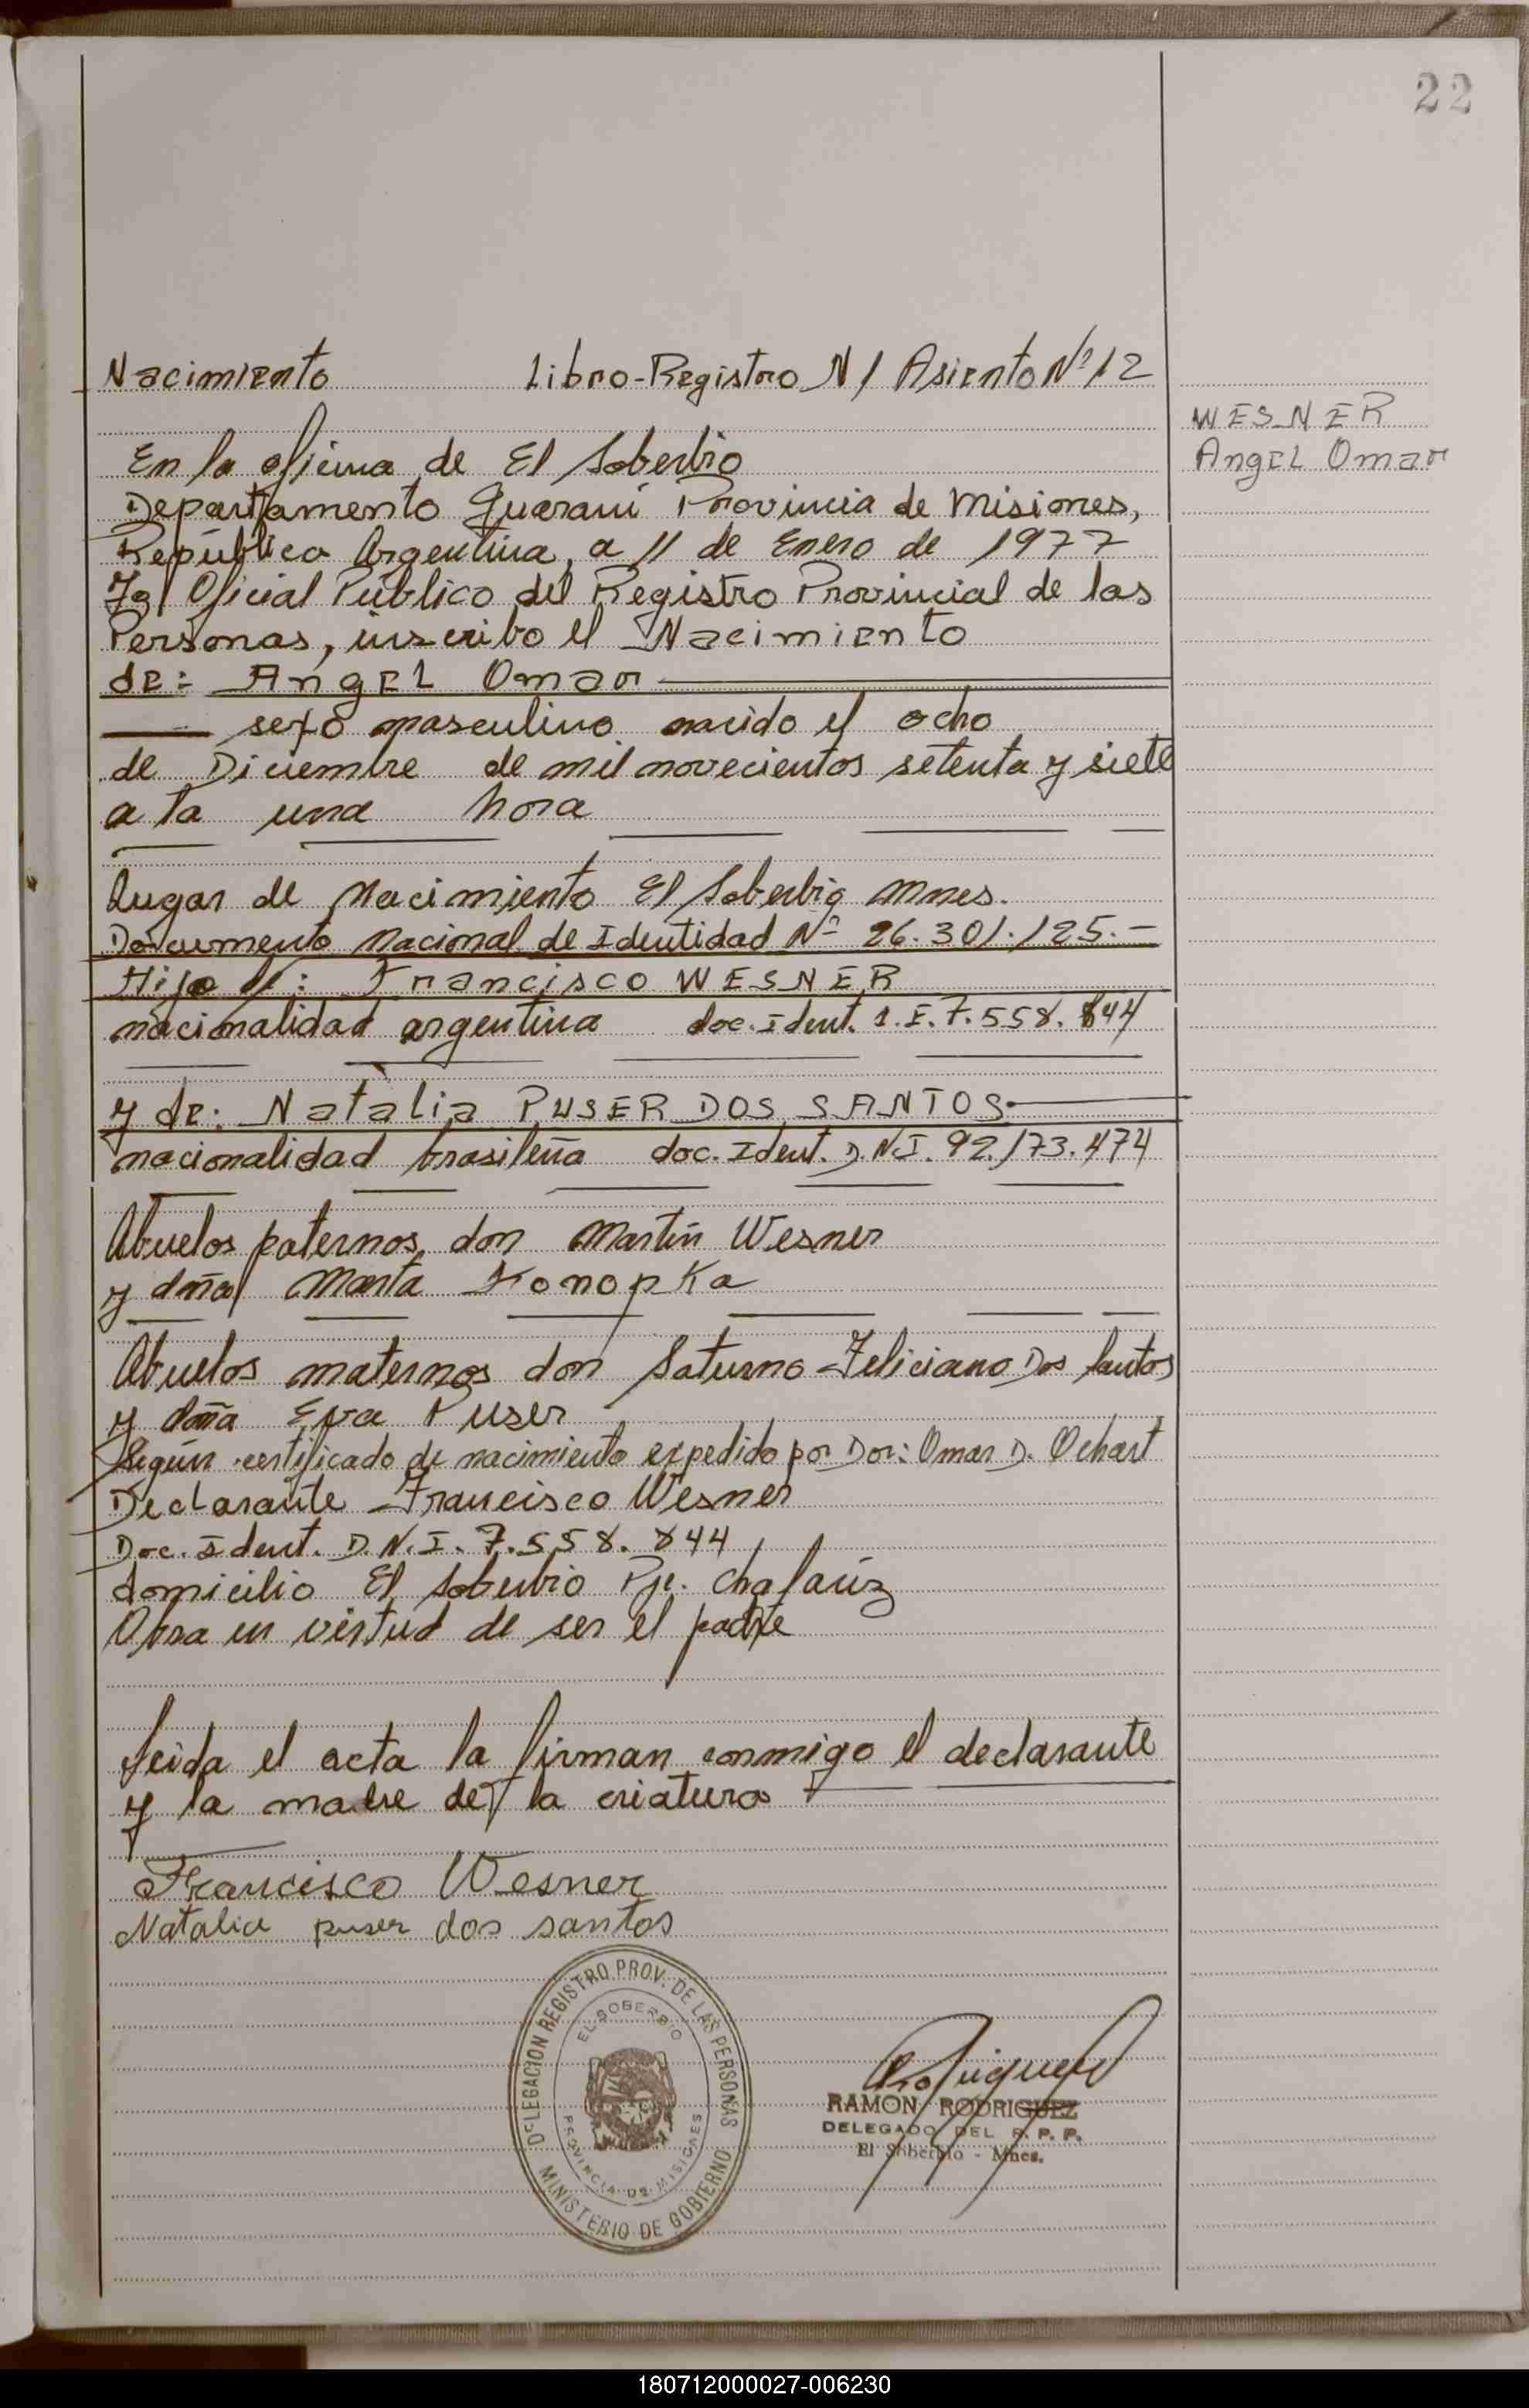 22
Nacimiento Libro-Registro N 1 Asiento Nº 12
WESNER
Angel Omar
En la oficina de El Soberbio
Departamento Guaraní Provincia de Misiones,
República Argentina, a 11 de Enero de 1977
Yo Oficial Público del Registro Provincial de las
Personas, inscribo el Nacimiento
de: Angel Omar
sexo masculino nacido el ocho
de Diciembre de mil novecientos setenta y siete
a la una hora
Lugar de Nacimiento El Soberbio Mnes.
Documento Nacional de Identidad Nº 26.301.125.-
Hijo de: Francisco WESNER
nacionalidad argentina doc. Ident. L.E. 7.558.844
y de: Natalia PUSER DOS SANTOS
nacionalidad brasileña doc. Ident. D.N.I. 92.173.474
Abuelos paternos, don Martín Wesner
y doña Marta Konopka
Abuelos maternos don Saturno Feliciano Dos Santos
y doña Eva Puser
Según certificado de nacimiento expedido por Dor: Omar D. Ochart
Declarante Francisco Wesner
Doc. Ident. D.N.I. 7.558.844
domicilio El Soberbio Pje. Chafariz
Obra en virtud de ser el padre
Leida el acta la firman conmigo el declarante
y la madre de la criatura
Francisco Wesner
Natalia puser dos santos
DELEGACION REGISTRO PROV. DE LAS PERSONAS
EL SOBERBIO
PROVINCIA DE MISIONES
MINISTERIO DE GOBIERNO
RAMON RODRIGUEZ
DELEGADO DEL R. P. P.
El Soberbio - Mnes.
180712000027-006230